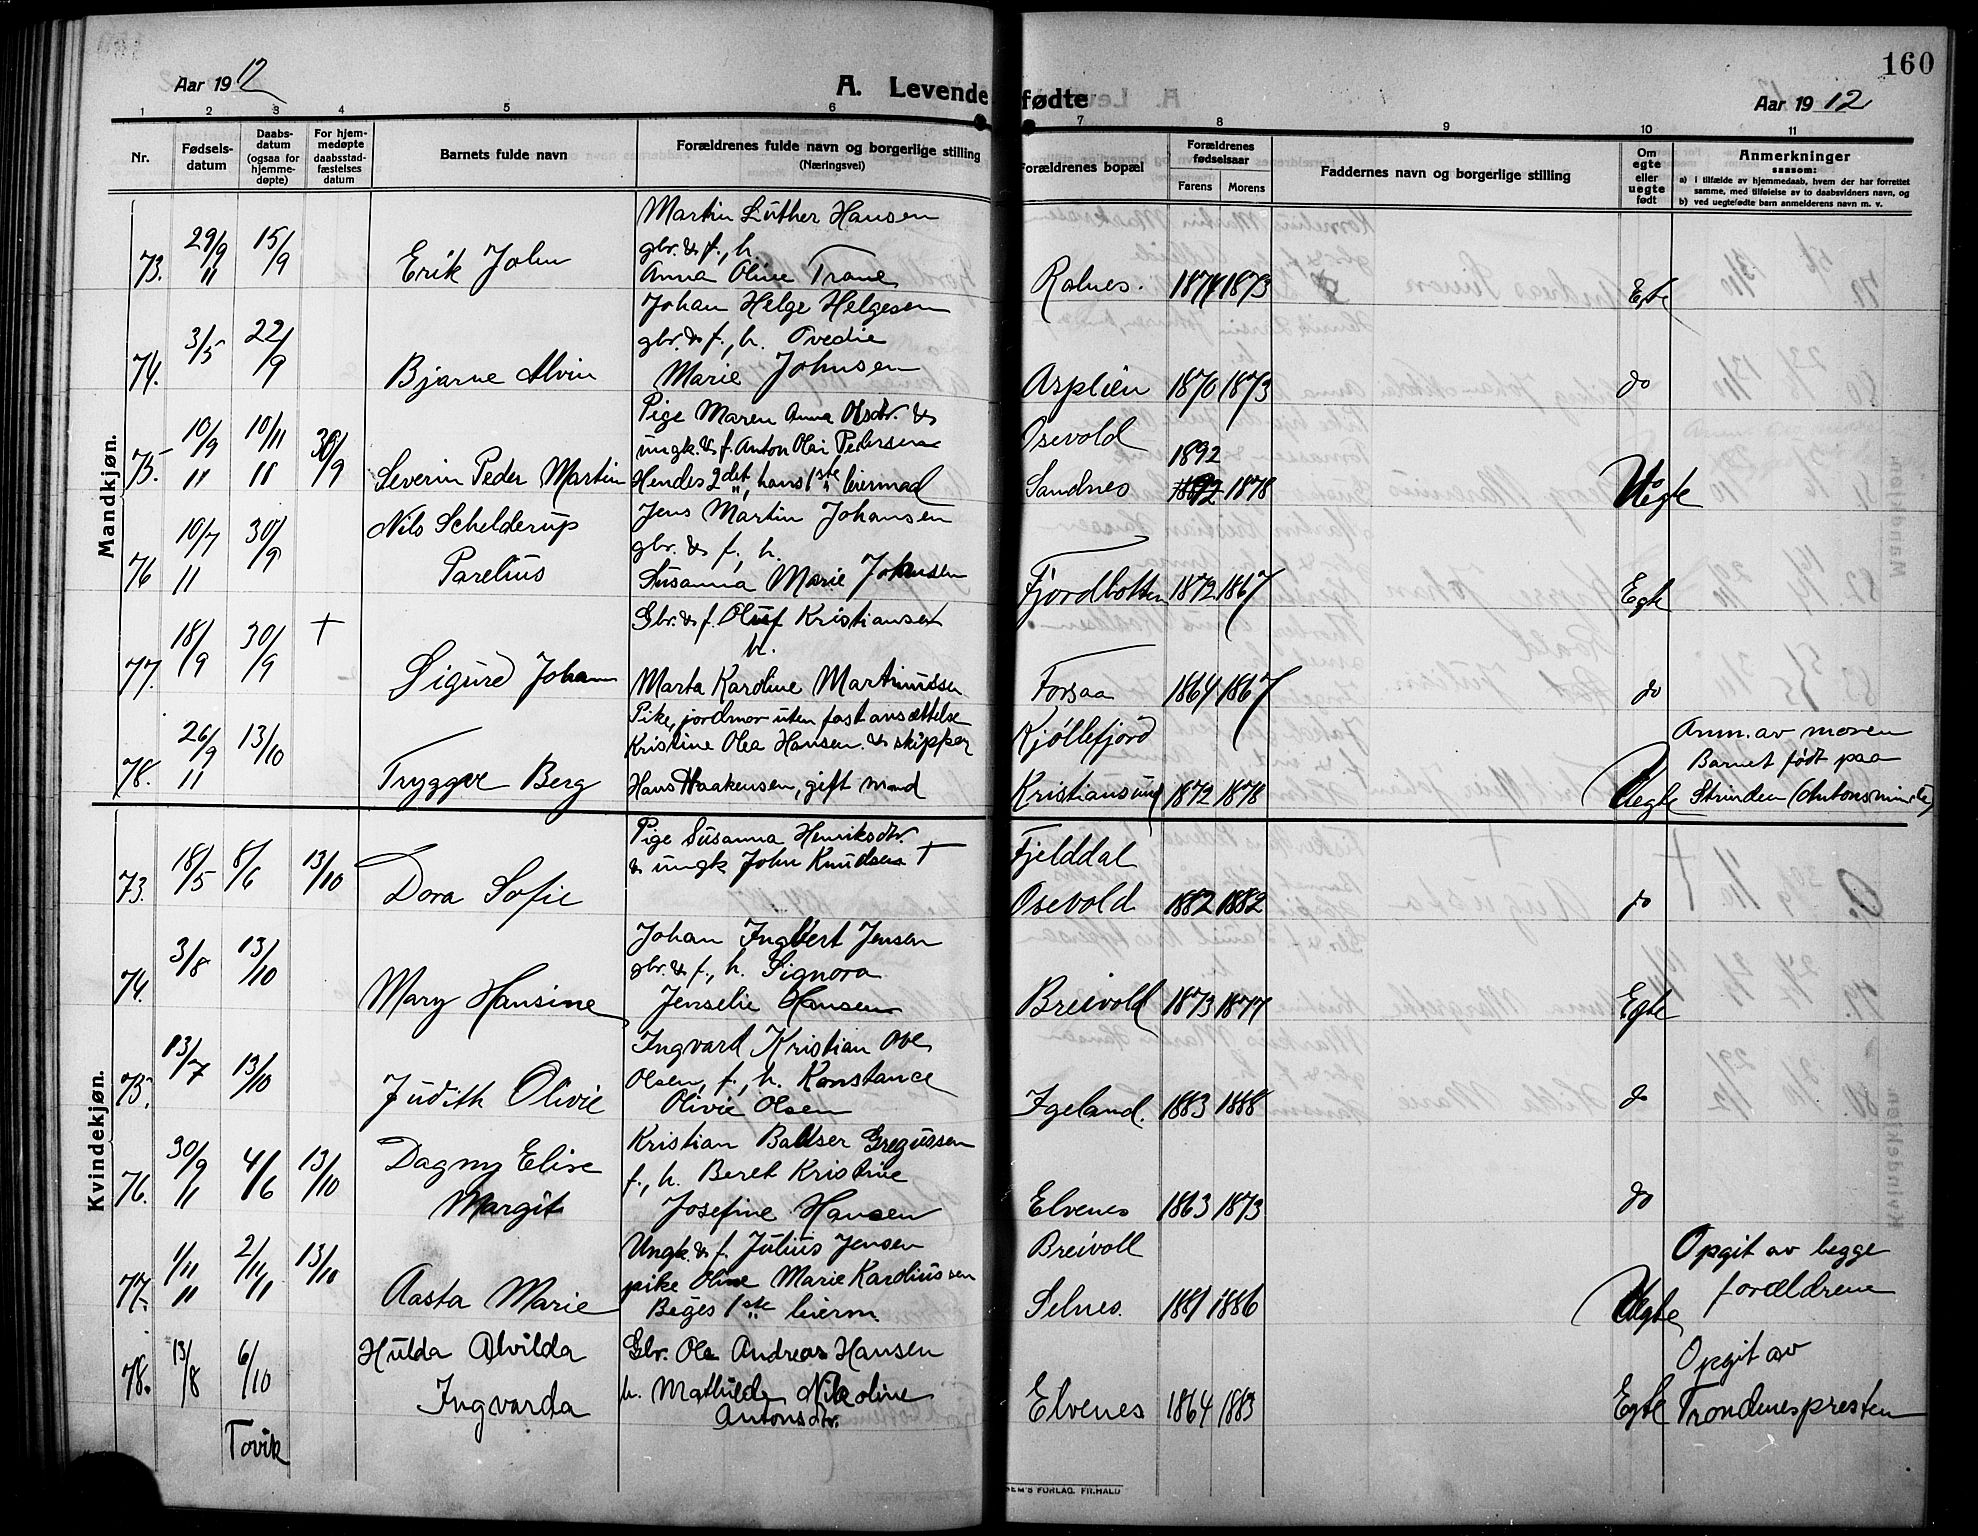 160
Aar 1912
A. Levende fødte
Aar 1912
1 2 3 4 5 6 7 8 9 10 11
Nr.
Fødsels-
datum
Daabs-
datum
(ogsaa for
hjemme-
døpte)
For hjem-
medøpte
daabsstad-
fæstelses
datum
Barnets fulde navn
Forældrenes fulde navn og borgerlige stilling
(Næringsvei)
Forældrenes bopæl
Forældrenes
fødselsaar
Farens Morens
Faddernes navn og borgerlige stilling
Om
egte
eller
uegte
født
Anmerkninger
saasom:
a) i tilfælde av hjemmedaab, hvem der har forrettet
samme, med tilføielse av to daabsvidners navn, og
b) ved uegtefødte barn anmelderens navn m. v.
Mandkjøn.
73. 29/9 11 15/9 Erik John
Martin Luther Hansen
gbr. & f., h.
Anna Oline Trane
Rolnes. 1874 1873 Egte
74. 3/5 22/9 Bjarne Alvin
Johan Helge Helgesen
gbr. & f., h. Ovedie
Marie Johnsen
Asplien 1870 1873 do
75. 10/9 11 10/11 11 30/9 Severin Peder Martin
Pige Maren Anna Olsdtr. &
ungk. & f. Anton Olai Pedersen
Hendes 2det, hans 1ste leiermaal
Osevold
Sandnes 1892 1878 Uegte
76 10/7 11 30/9 Nils Schelderup
Parelius
Jens Martin Johansen
gbr. & f., h.
Susanna Marie Johnsen
Fjordbotten 1872 1867 Egte
77. 18/9 30/9 + Sigurd Johan
Gbr. & f. Oluf Kristiansen
h.
Marta Karoline Martinussen
Forsaa 1864 1867 do
78. 26/9 11 13/10 Tryggve Berg
Pike, jordmor uten fast ansættelse
Kristine Olea Hansen. & skipper
Hans Haakensen, gift mand
Kjøllefjord
Kristiansund 1872 1878 Uegte
Anm. av moren
Barnet født paa
Strinden (Antonsminde)
Kvindekjøn.
73. 18/5 8/6 13/10 Dora Sofie
Pige Susanna Henriksdtr.
& ungk John Knudsen +
Fjelddal
Osevold 1882 1882 do
74. 3/8 13/10 Mary Hansine
Johan Ingbert Jensen
gbr. & f., h. Signora
Jenselie Hansen
Breivold 1873 1877 Egte
75. 13/7 13/10 Judith Olivie
Ingvard Kristian Ove
Olsen, f., h. Konstance
Olivie Olsen
Igeland. 1883 1888 do
76. 30/9 11 4/6 13/10 Dagny Elise
Margit
Kristian Baltser Gregussen
f., h. Beret Kristine
Josefine Hansen
Elvenes 1863 1873 do
77. 1/11 11 2/11 11 13/10 Aasta Marie
Ungk. & f. Julius Jensen
pike Oline Marie Karoliussen
Beges 1ste leierm.
Breivoll
Selnes. 1881 1886 Uegte
Opgit av begge
forældrene
78. 13/8 6/10 Hulda Alvilda
Ingvarda
Gbr. Ole Andreas Hansen
h. Mathilde Nikoline
Antonsdtr.
Elvenes 1864 1883 Egte
Opgit av
Trondenespresten
Tovik
SEM'S FORLAG. FR.HALD